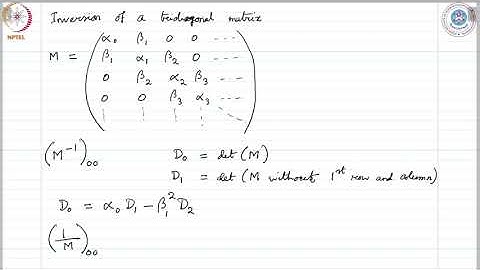 NPTEL
Inversion of a tridiagonal matrix
M = ( α₀ β₁ 0 0 ----
β₁ α₁ β₂ 0 ----
0 β₂ α₂ β₃ ----
0 0 β₃ α₃ ---- )
(M⁻¹)₀₀ D₀ = det (M)
D₁ = det (M without 1st row and column)
D₀ = α₀ D₁ − β₁² D₂
(1/M)₀₀